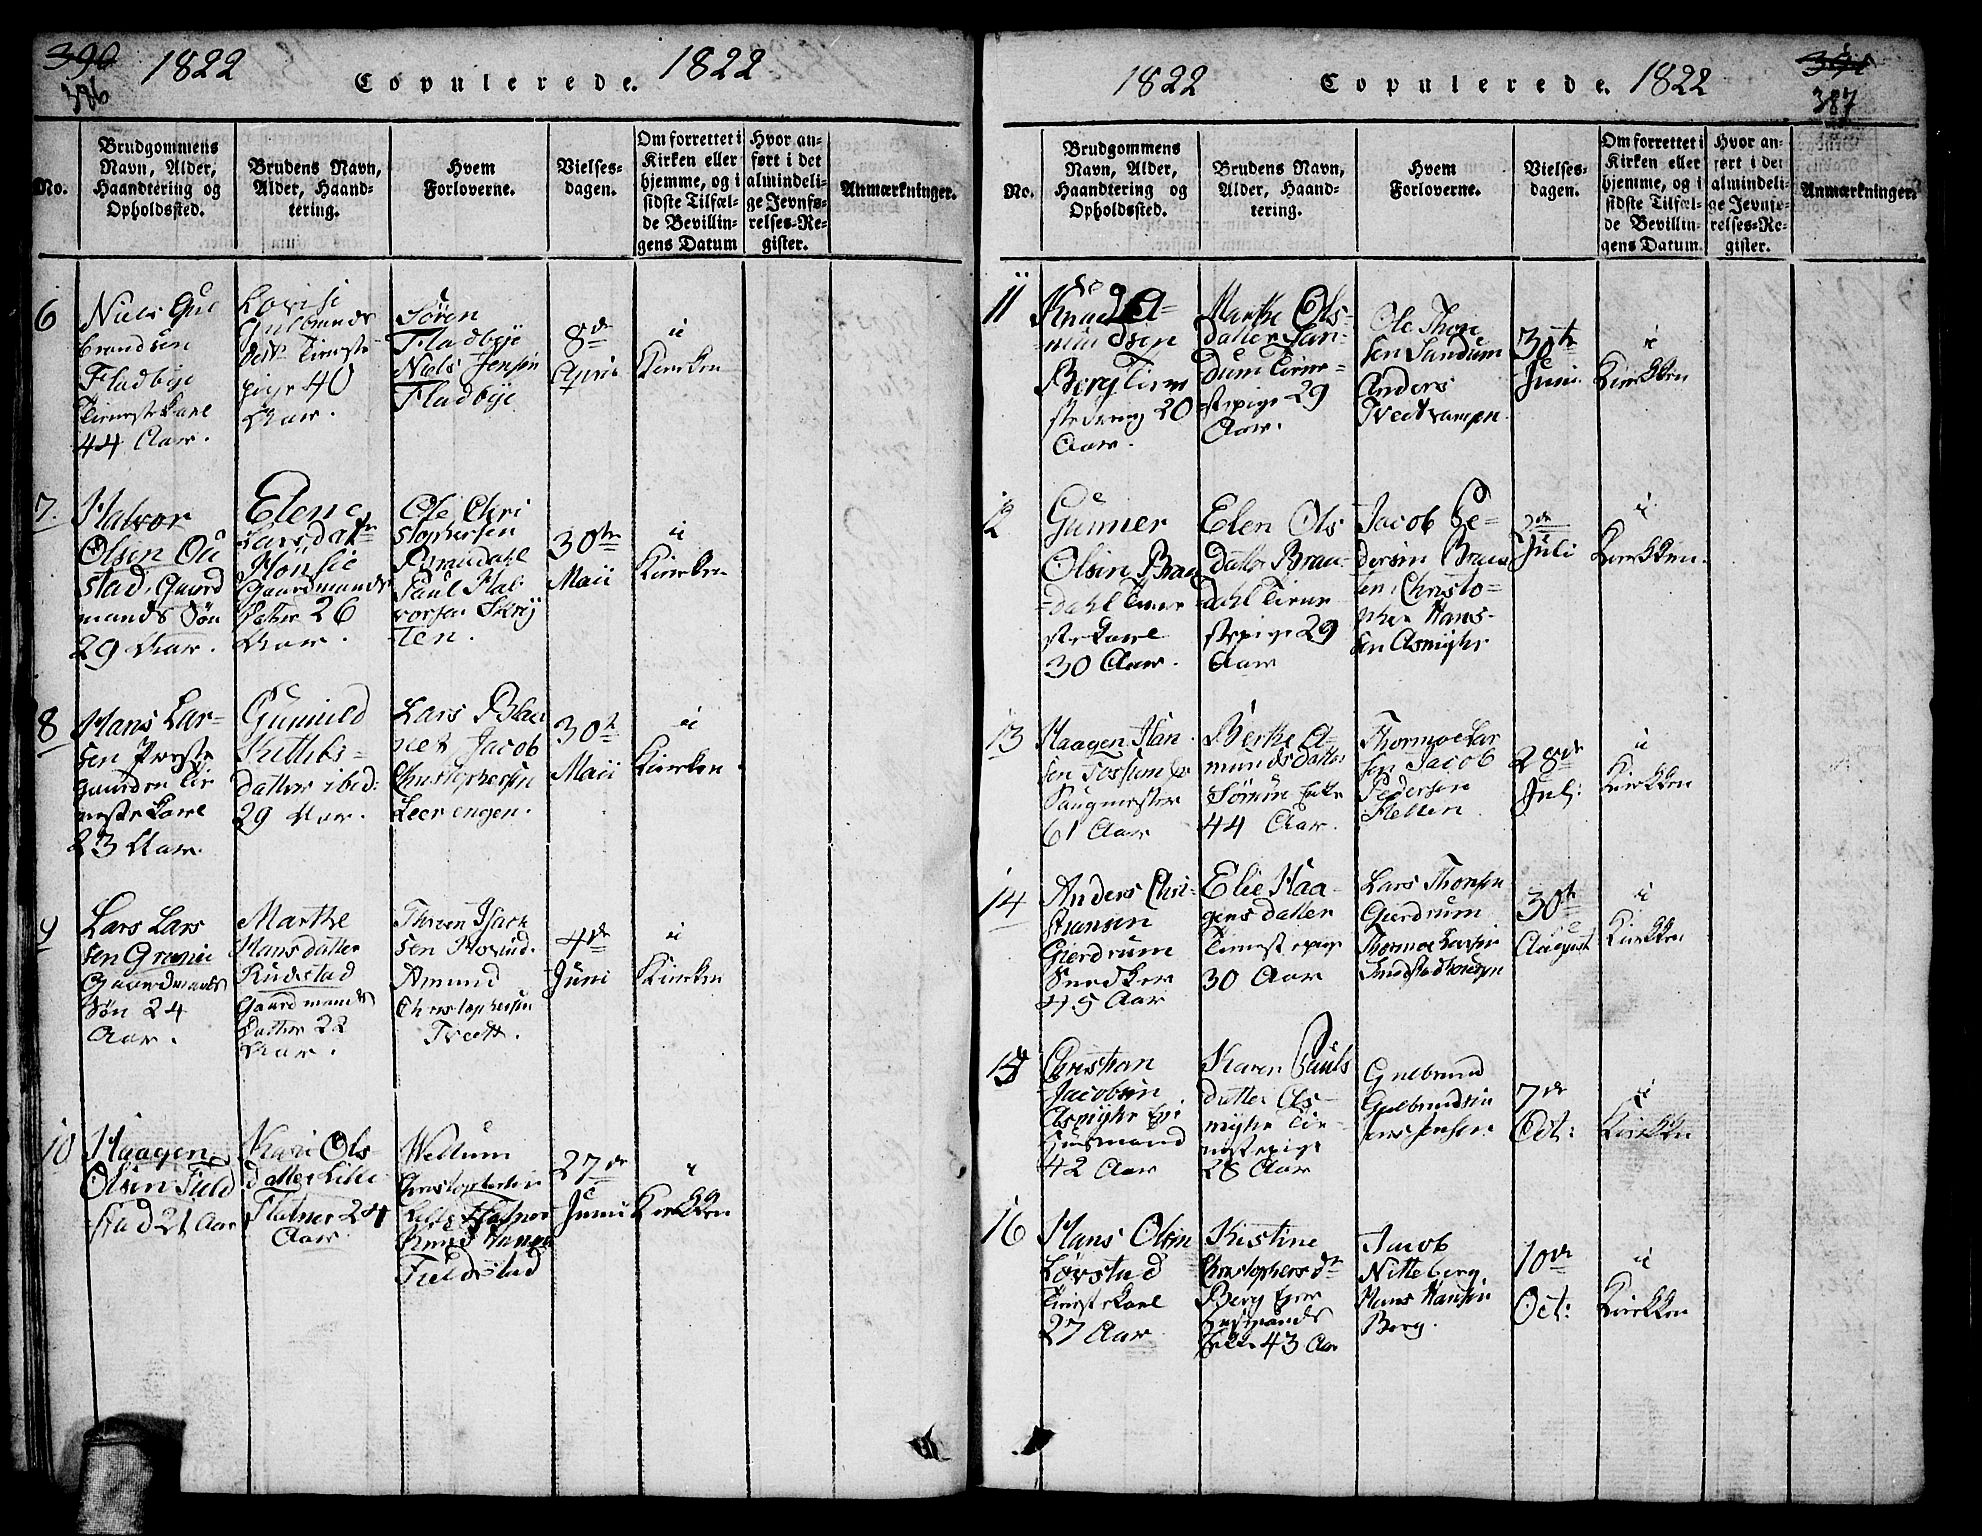 390
386
1822
Copulerede.
1822
No.
Brudgommens
Navn, Alder,
Haandtering og
Opholdssted.
Brudens Navn,
Alder, Haand-
tering.
Hvem
Forloverne.
Vielses-
dagen.
Om forrettet i
Kirken eller
hjemme, og i
sidste Tilfæl-
de Bevillin-
gens Datum
Hvor an-
ført i det
almindeli-
ge Jevnfø-
relses-Re-
gister.
Anmærkninger.
6
Niels Gul
brandsen
Fladbye
Tienestekarl
44 Aar.
Lovise
Gulbrands
datr Tieneste
pige 40
Aar.
Sören
Fladbye
Niels Jensen
Fladbye
8de
April
i
Kierken
7.
Halvor
Olsen Ou
stad, Gaard
mands Sön
29 Aar.
Elene
Larsdatr
Mönsie
Gaardmands
Datter 26
Aar.
Ole Chri
stophersen
Braadahl
Paul Hal
vorsen Skry
ten.
30te
Maii
i
Kierken
8
Hans Lar-
sen Preste
gaarden Tie
nestekarl
23 Aar.
Gunild
Kittils-
datter ibid:
29 Aar.
Lars
Jacob
Christophersen
Leerengen.
30t
Maii
i
Kierken.
9
Lars Lars
sen Grønie
Gaardmands
Sön 24
Aar.
Marthe
Hansdatter
Rudstad
Gaardmands
Datter 22
Aar.
Isach
sen
Amund
Christophersen
Tvedt.
4de
Juni
i
Kierken
10
Haagen
Olsen Field
stad 21 Aar
Kari Ols
datter Lille
Flatner 24
Aar.
Wellum
Christophersen
Lille Flatner
Knud Hansen
Fieldstad
27de
Juni
i
Kierkken
1822
Copulerede.
1822
387
No.
Brudgommens
Navn, Alder,
Haandtering og
Opholdssted.
Brudens Navn,
Alder, Haand-
tering.
Hvem
Forloverne.
Vielses-
dagen.
Om forrettet i
Kirken eller
hjemme, og i
sidste Tilfæl-
de Bevillin-
gens Datum.
Hvor an-
ført i det
almindeli-
ge Jevnfø-
relses-Re-
gister.
Anmærkninger.
11
Knud A-
mundsen
Berg Tiene
stedreng 20
Aar.
Marthe Ols-
datter San-
dum Tiene-
stepige 29
Aar.
Ole Thore
sen Sandum
Anders
Tvedtrampen.
30te
Juni
i
Kierkken
12
Gunner
Olsen Braa
-dahl Tiene
stekarl
30 Aar.
Elen Ols
datter Braa-
dahl Tiene
stepige 29
Aar
Jacob Pe-
dersen Braa
Christo-
pher Hans-
sen Asmyhr
2de
Juli
i
Kierkken.
13
Haagen Han
sen Fossum
Saugmester
61 Aar
Berthe A-
mundsdatter
Enke
44 Aar.
Thormoe Lar
sen Jacob
Pedersen
28de
Jul:
i
Kierkken
14
Anders Chri-
stiansen
Gierdrum
Snedker
45 Aar
Elie Haa-
gensdatter
Tienestepige
30 Aar
Lars Thorsen
Gierdrum
Thormoe Larsen
30te
August
i
Kierkken
15
Christian
Jacobsen
Asmyhr Eie
Huusmand
42 Aar
Karen Pauls
datter As-
myhr Tie-
nestepige
28 Aar
Gulbrand
Gulbrandsen
Jens Jensen
7de
Oct:
i
Kierkken
16
Hans Olsen
Lörstad
Tienestekarl
27 Aar
Kistine
Christophersdtr
Berg Eier
Huusmands
Enke 43 Aar
Jacob
Nitteberg
Hans Hansen
Berg.
10de
Oct:
i
Kierkken